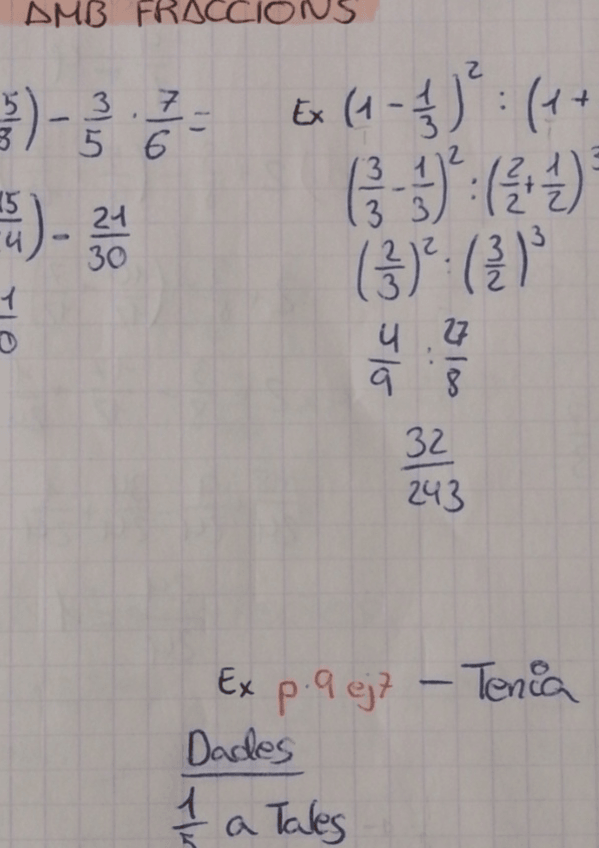 AMB FRACCIONS
5/8) - 3/5 · 7/6 =
15/4) - 21/30
1/0
Ex (1 - 1/3)² : (1 +
(3/3 - 1/3)² : (2/2 + 1/2)³
(2/3)² : (3/2)³
4/9 : 27/8
32/243
Ex p.9 ej7 - Tenia
Dades
1/5 a Tales